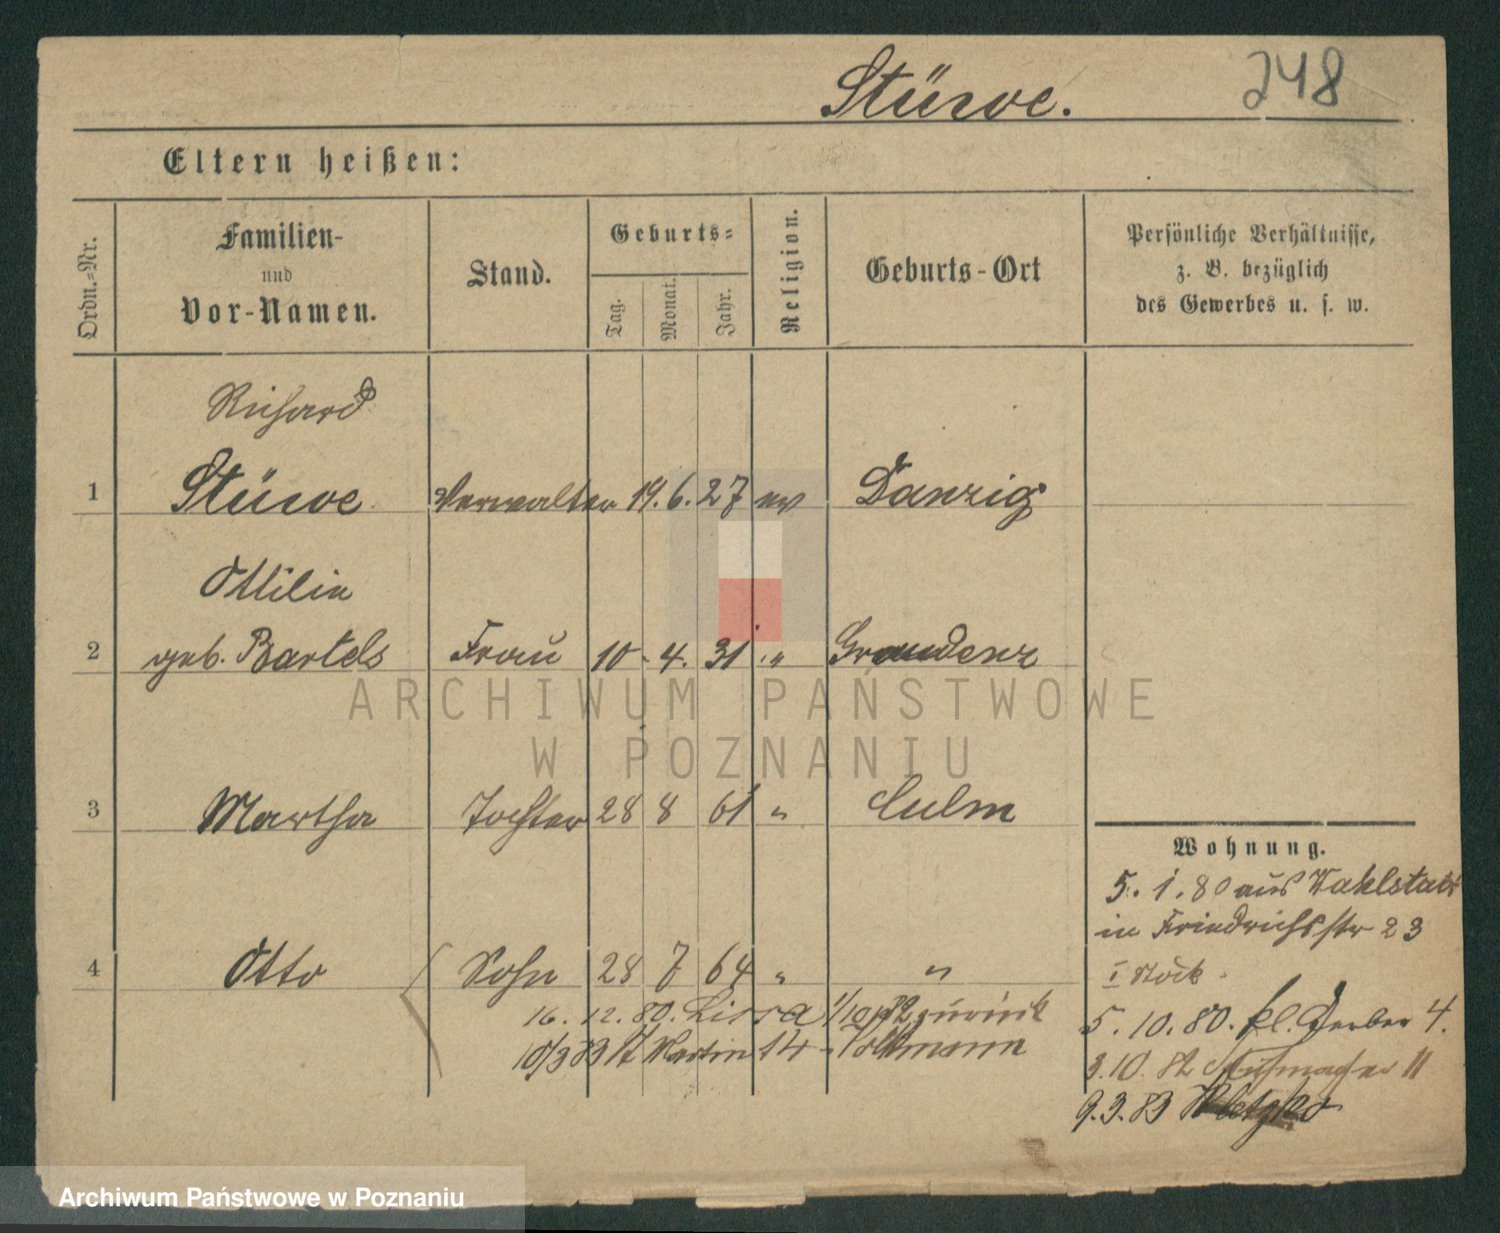 Stüwe.
248
Eltern heißen:
Ordn.-Nr.
Familien-
und
Vor-Namen.
Stand.
Geburts-
Tag.
Monat.
Jahr.
Religion.
Geburts-Ort
Persönliche Verhältnisse,
z. B. bezüglich
des Gewerbes u. s. w.
Richard
1 Stüwe Verwalter 19. 6. 27 ev Danzig
Ottilie
2 geb. Bartels Frau 10. 4. 31 " Graudenz
ARCHIWUM PAŃSTWOWE
W POZNANIU
3 Martha Tochter 28 8 61 " Culm
4 Otto Sohn 28 7 64 " "
16. 12. 80. Lissa 1/10 82 zurück
10/3 83 St Martin 14
Wohnung.
5. 1. 80 aus Wahlstatt
in Friedrichsstr 23
I Stock.
5. 10. 80. kl. Gerber 4.
3. 10. 82 11
9. 3. 83
Archiwum Państwowe w Poznaniu